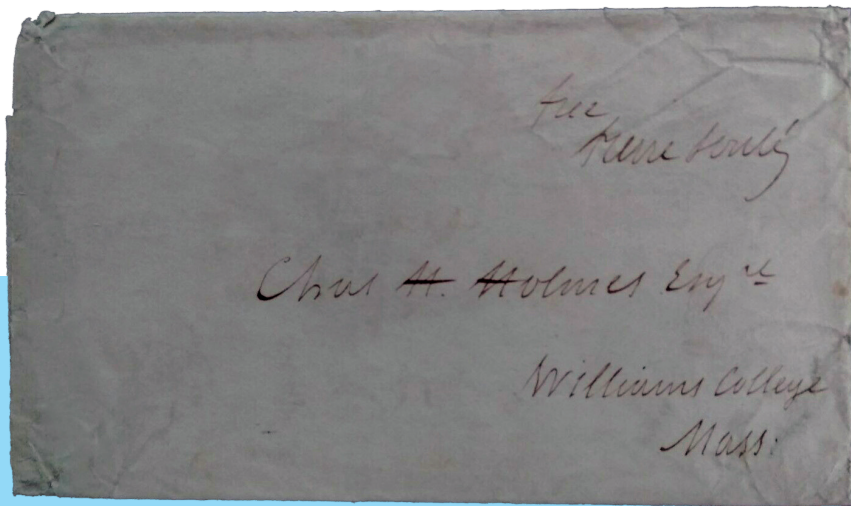 free
Pierre Soulé
Chas H. Holmes Esqre
Williams College
Mass: